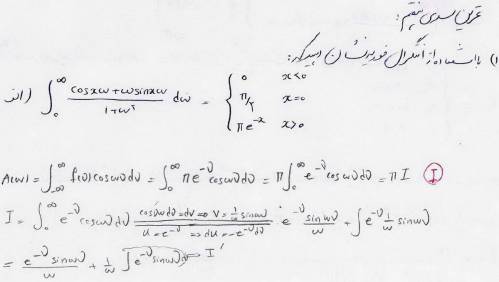 تمرین سری پنجم:
۱) با استفاده از انتگرال فوریه نشان دهید که:
الف) ∫₀^∞ (cosxω + ω sinxω)/(1+ω²) dω = { 0 x<0
π/۲ x=0
πe^-x x>0
A(ω) = ∫_{-∞}^∞ f(v) cosωv dv = ∫₀^∞ πe^-v cosωv dv = π∫₀^∞ e^-v cosωv dv = πI Ⓘ
I = ∫₀^∞ e^-v cosωv dv cosωv dv = dv ⇒ v = 1/ω sinωv
u = e^-v ⇒ du = -e^-v dv e^-v sinωv/ω + ∫e^-v 1/ω sinωv
= e^-v sinωv/ω + 1/ω ∫e^-v sinωv dv ⇒ I'